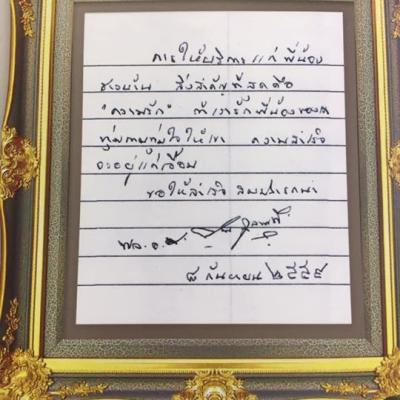 การให้บริการแก่พี่น้อง
ชาวบ้าน สิ่งสำคัญที่สุดคือ
"ความรัก" ถ้าเรารักพี่น้องของเรา
ทุ่มเทแรงใจให้เขา ความสำเร็จ
จะอยู่แค่เอื้อม
ขอให้สำเร็จ สมปรารถนา
พล.อ.
๘ กันยายน ๒๕๕๙